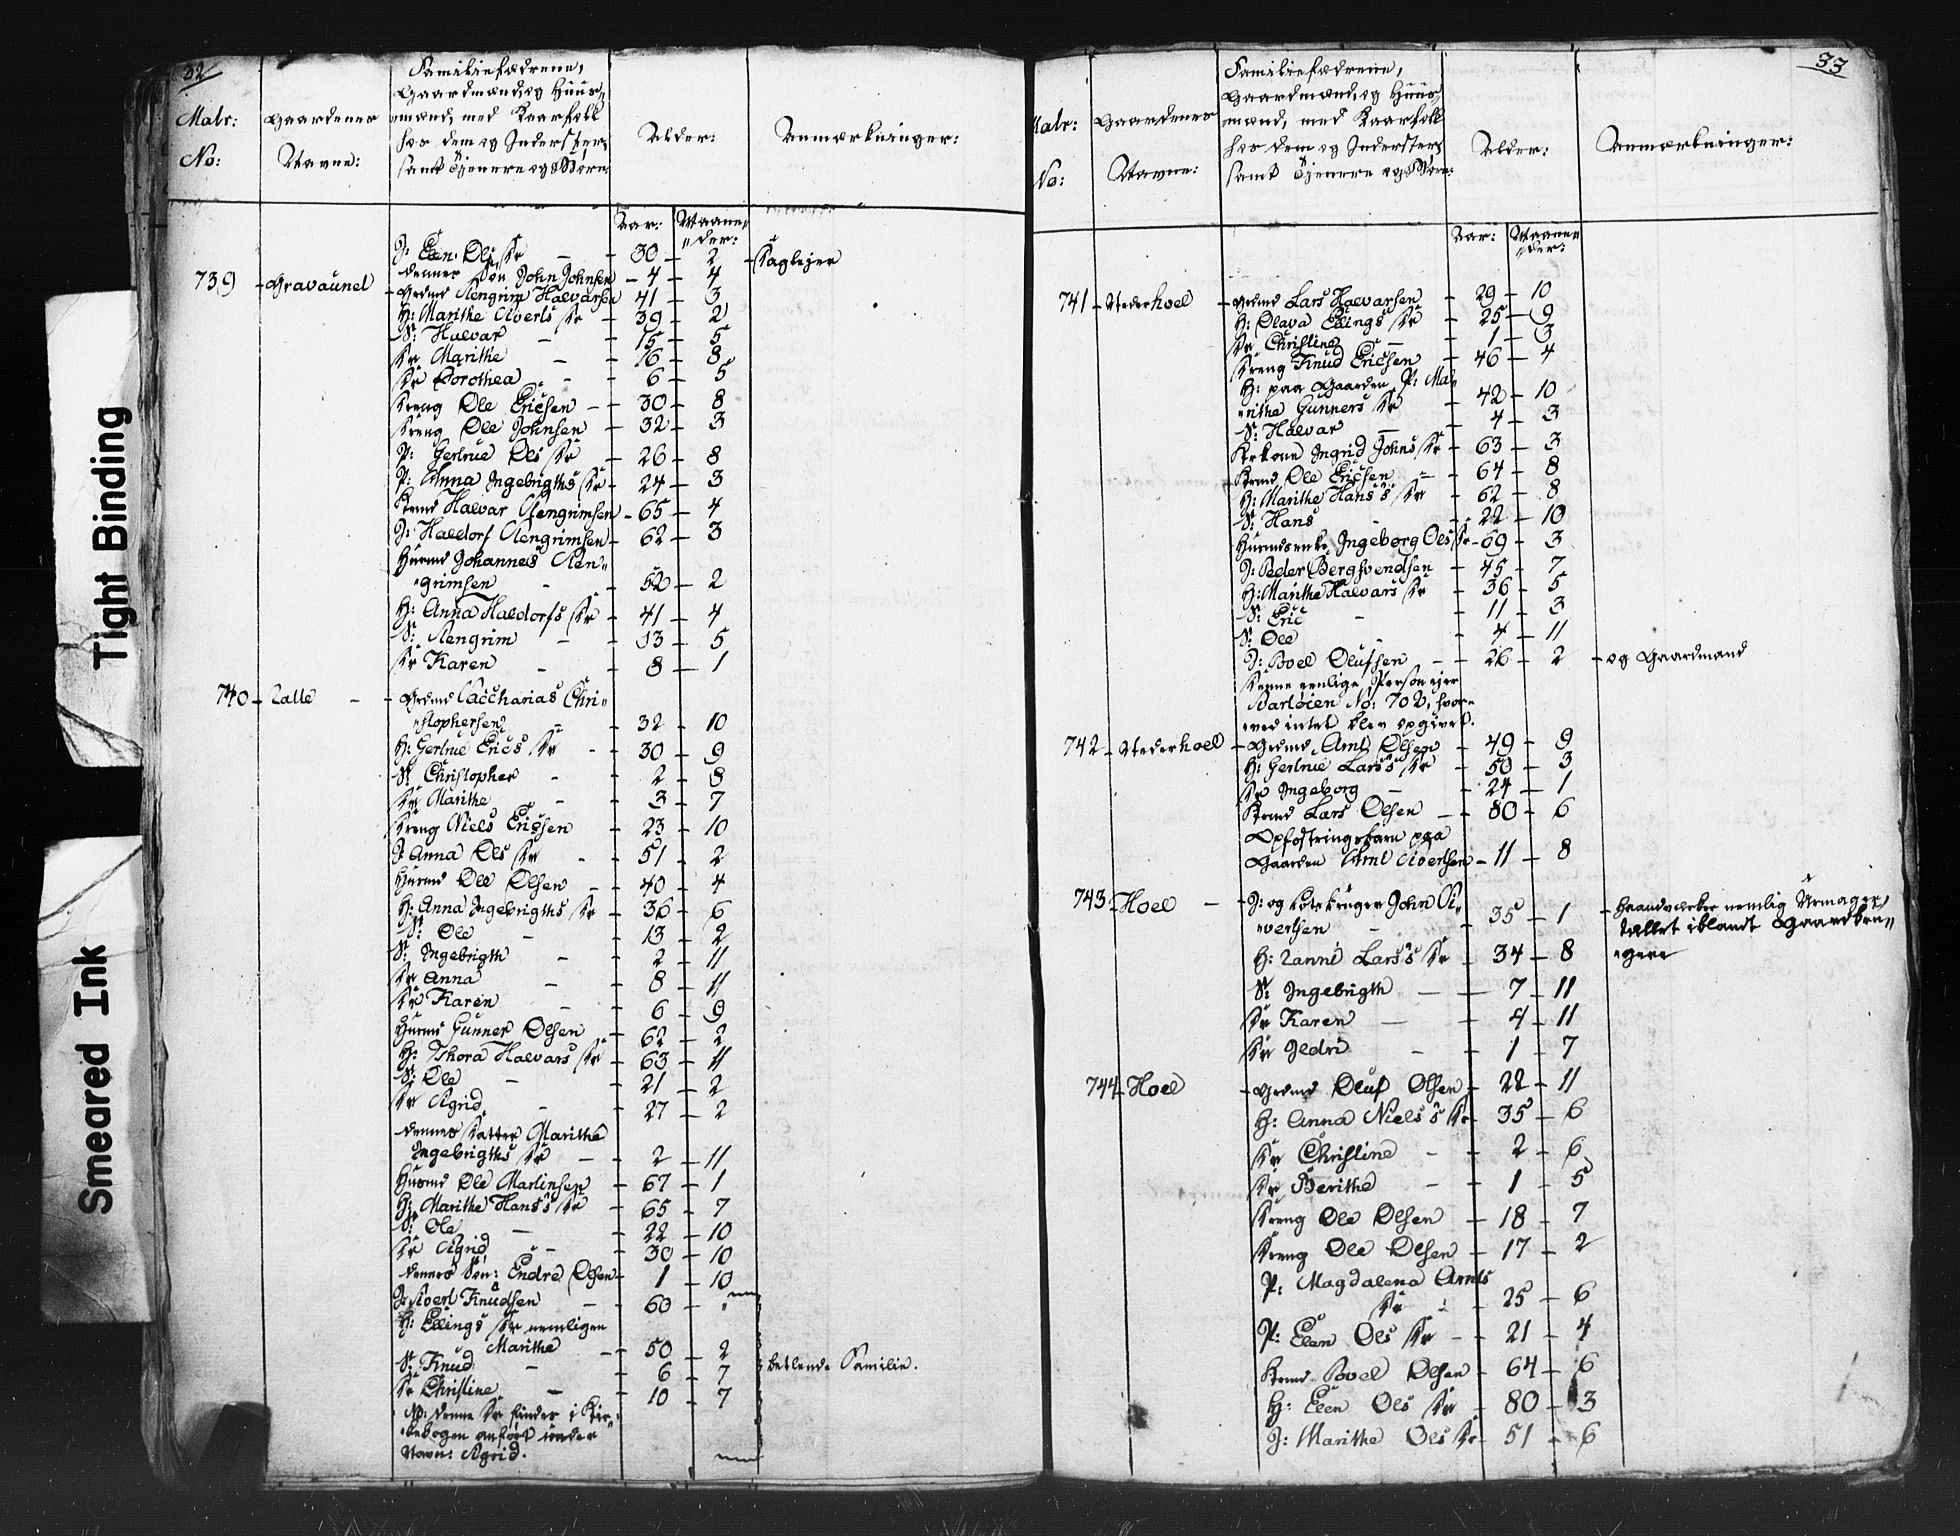 32
Matr: No:
Gaardenes Navne:
Familiefædrene,
Gaardmænd, og Huus-
mænd, med Kaarfolk
hos dem og Inderster,
samt Tjenere og Børn:
Alder:
Anmærkninger:
Aar: Maane-
der:
J: Elen Ols Dr - 30 - 2 - Daglejer
dennes Søn John Johnsen - 4 - 4
739 - Gravaunet - Grdmd Arngrim Halvarsen 41 - 3
H: Marithe Siverts Dr - 39 - 2
S: Halvar - 15 - 5
Dr Marithe - 16 - 8
Dr Dorothea - 6 - 5
Dreng Ole Ericsen - 30 - 8
Dreng Ole Johnsen - 32 - 3
P: Gertrue Ols Dr - 26 - 8
P: Anna Ingebrigths Dr - 24 - 3
Krmd Halvar Arngrimsen - 65 - 4
J: Haldorf Arngrimsen - 62 - 3
Husmd Johannes Arn-
grimsen - 52 - 2
H: Anna Haldorfs Dr - 41 - 4
S: Arngrim - 13 - 5
Dr Karen - 8 - 1
740 - Lalle - Grdmd Zaccharias Chri-
stophersen - 32 - 10
H: Gertrue Erics Dr - 30 - 9
S: Christopher - 2 - 8
Dr Marithe - 3 - 7
Dreng Niels Ericsen - 23 - 10
J: Anna Ols Dr - 51 - 2
Husmd Ole Olsen - 40 - 4
H: Anna Ingebrigths Dr - 36 - 6
S: Ole - 13 - 2
S: Ingebrigth - 2 - 11
Dr Anna - 8 - 11
Dr Karen - 6 - 9
Husmd Gunner Olsen - 62 - 2
H: Thora Halvars Dr - 63 - 11
S: Ole - 21 - 2
Dr Sigrid - 27 - 2
dennes Datter Marithe
Ingebrigths Dr - 2 - 11
Husmd Ole Martinsen - 67 - 1
H: Marithe Hans's Dr - 65 - 7
S: Ole - 22 - 10
Dr Sigrid - 30 - 10
dennes Søn: Endre Olsen - 1 - 10
J: Sivert Knudsen - 60 -
H: Ellings Dr nemligen
Marithe - 50 - 2
S: Knud - 6 - 7 betlende Familie.
Dr Christine - 10 - 7
NB: denne Dr findes i Kir-
kebogen anført under
Navn: Sigrid.
33
Matr: No:
Gaardenes Navne:
Familiefædrene,
Gaardmænd, og Huus-
mænd, med Kaarfolk
hos dem og Inderster,
samt Tjenere og Børn:
Alder:
Anmærkninger:
Aar: Maane-
der:
741 - Nederhoel - Grdmd Lars Halvarsen - 29 - 10
H: Olava Ellings Dr - 25 - 9
Dr Christine - 1 - 3
Dreng Knud Ericsen - 46 - 4
H: paa Gaarden P: Ma-
rithe Gunners Dr - 42 - 10
S: Halvar - 4 - 3
Krkone Ingrid Johns Dr - 63 - 3
Krmd Ole Ericsen - 64 - 8
H: Marithe Hans's Dr - 62 - 8
S: Hans - 22 - 10
Husmdsenke Ingeborg Ols Dr - 69 - 3
J: Peder Bergsvendsen - 45 - 7
H: Marithe Halvars Dr - 36 - 5
S: Eric - 11 - 3
S: Ole - 4 - 11
J: Povel Olufsen - 26 - 2 - og Gaardmand
Denne enlige Person ejer
No: 702, hvor-
ved intet blev opgivet.
742 - Nederhoel - Grdmd Arnt Olsen - 49 - 9
H: Gertrue Lars's Dr - 50 - 3
Dr Ingeborg - 24 - 1
Krmd Lars Olsen - 80 - 6
Opfostringsbarn paa
Gaarden Arnt Sivertsen - 11 - 8
743 - Hoel - J: og John Si-
vertsen - 35 - 1 - Haandværker nemlig Urmager,
tællet iblandt Gaardbru-
gere
H: Lanni Lars's Dr - 34 - 8
S: Ingebrigth - 7 - 11
Dr Karen - 4 - 11
Dr Ildri - 1 - 7
744 - Hoel - Grdmd Oluf Olsen - 22 - 11
H: Anna Niels's Dr - 35 - 6
Dr Christine - 2 - 6
Dr Berithe - 1 - 5
Dreng Ole Olsen - 18 - 7
Dreng Ole Olsen - 17 - 2
P: Magdalena Arnts
Dr - 25 - 6
P: Elen Ols Dr - 21 - 4
Krmd Povel Olsen - 64 - 6
H: Elen Ols Dr - 80 - 3
J: Marithe Ols Dr - 51 - 6
Tight Binding
Smeared Ink